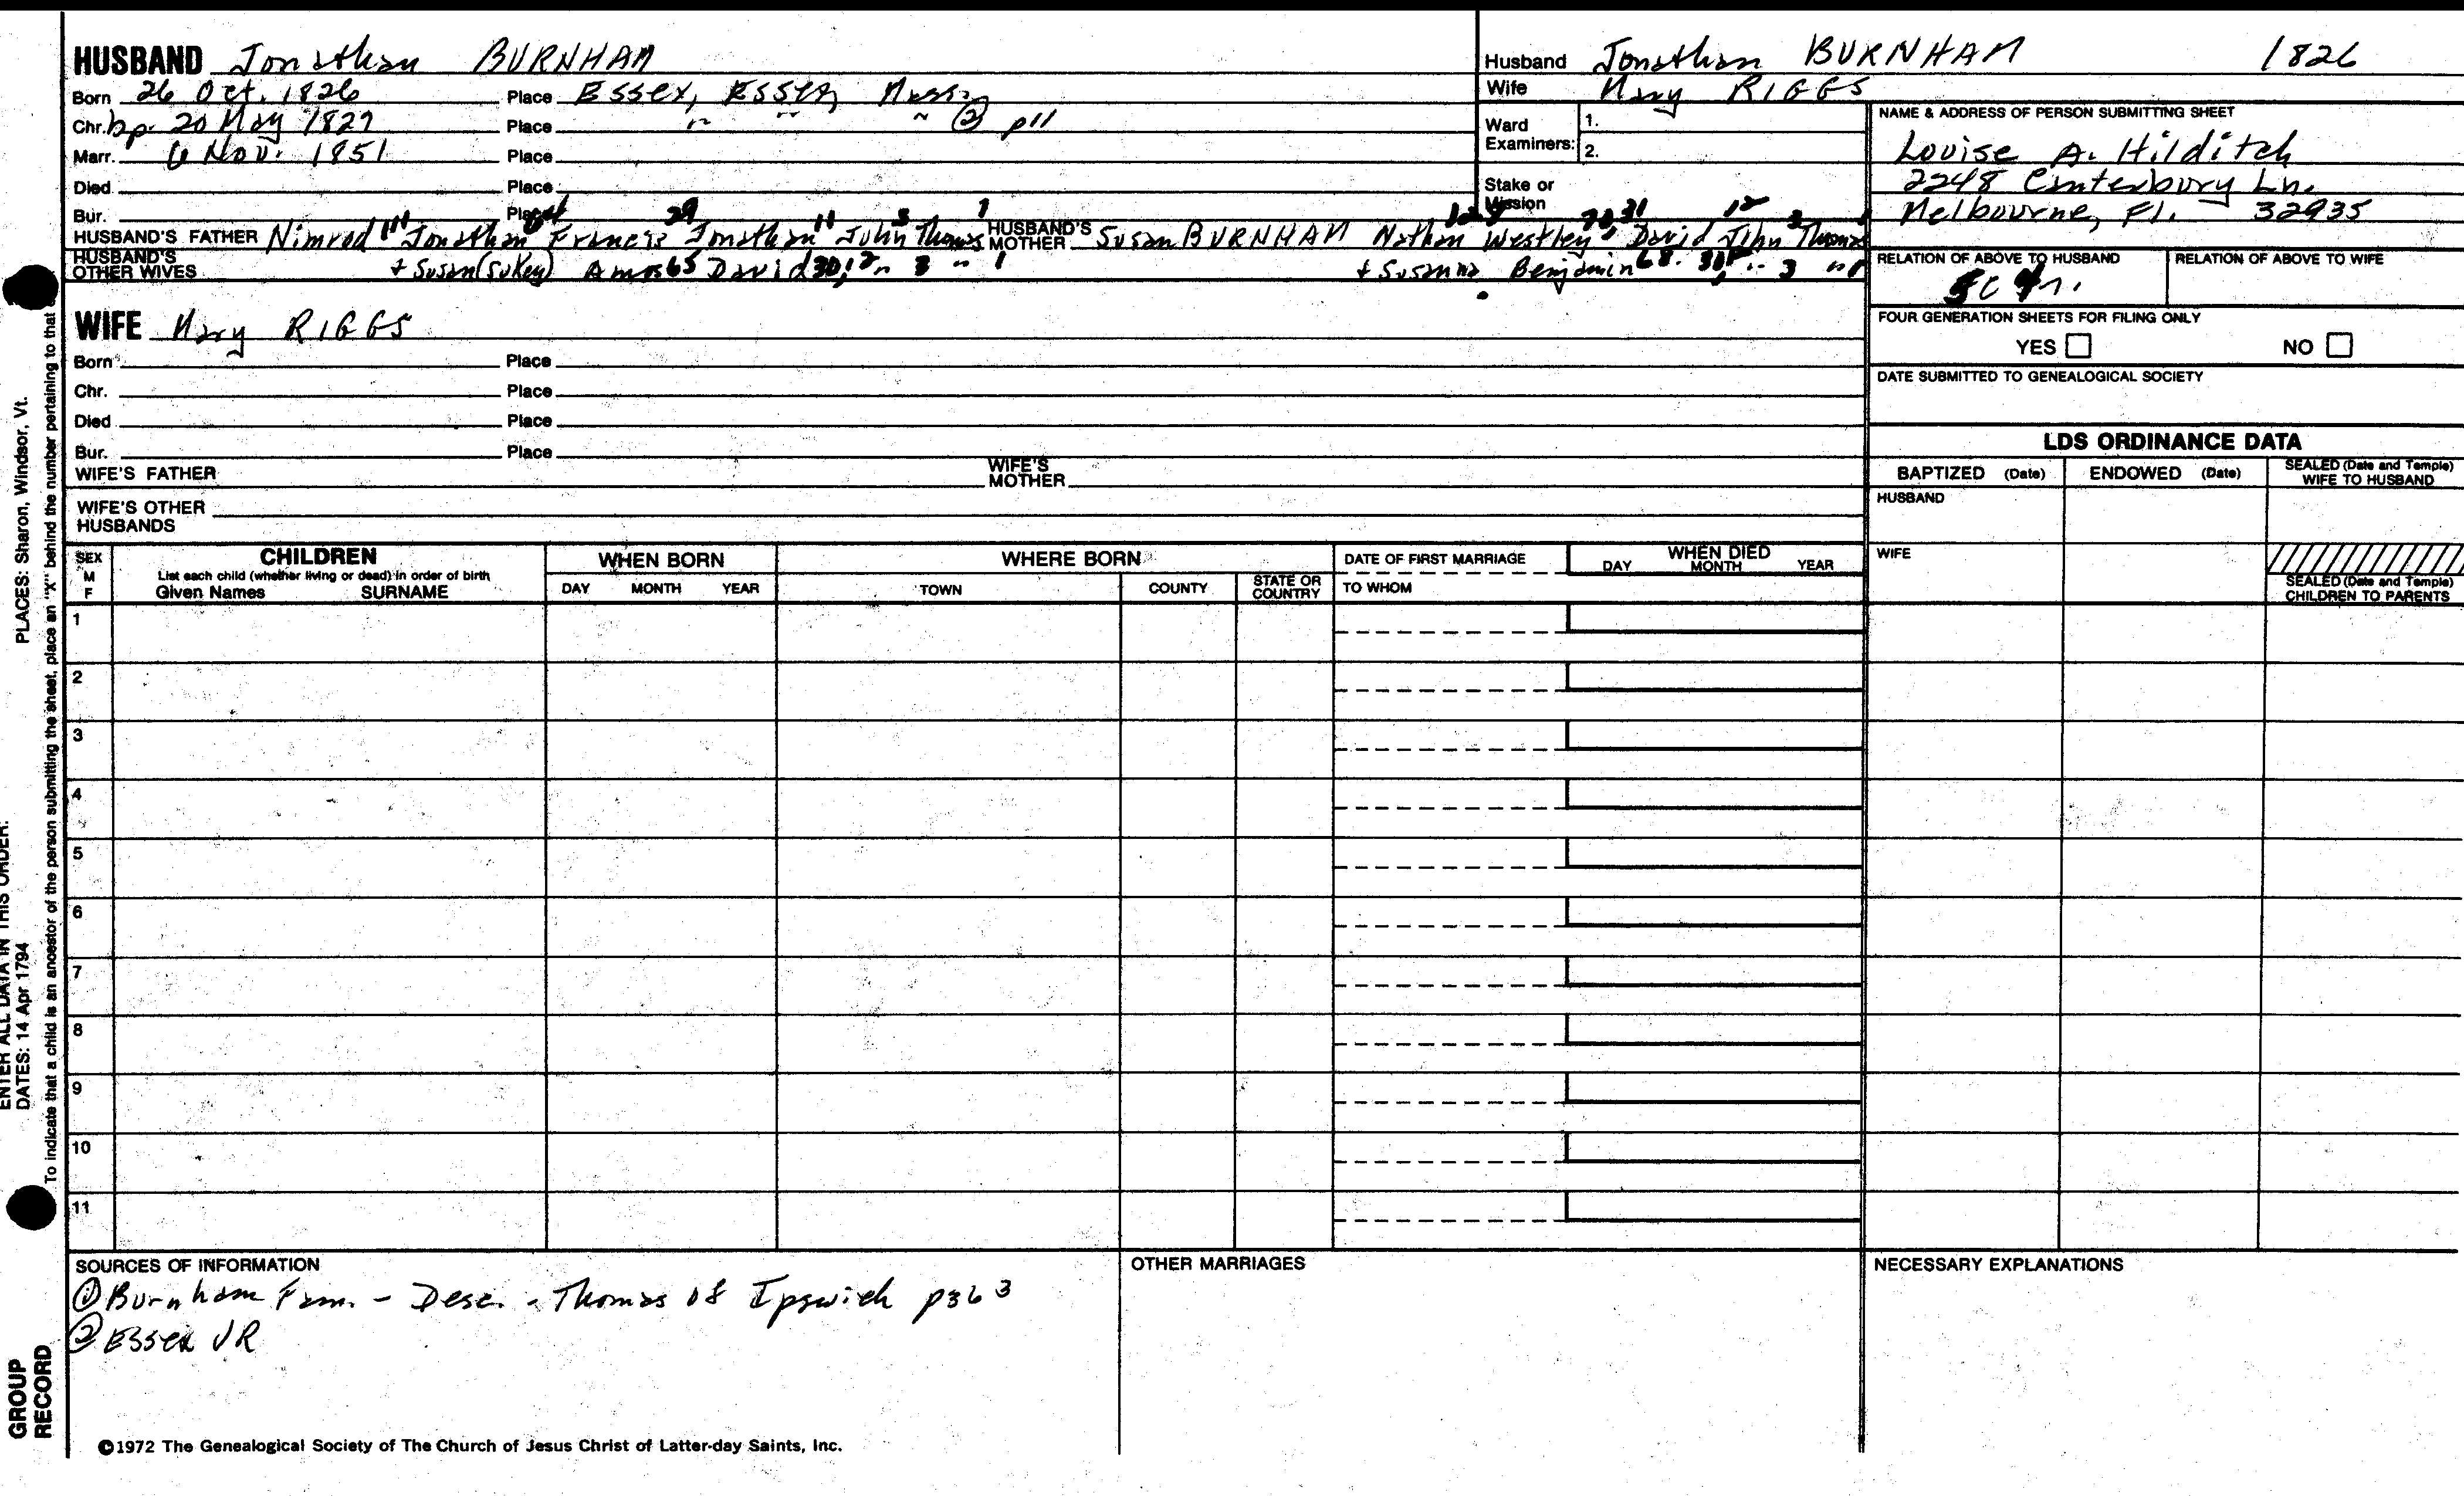 HUSBAND Jonathan BURNHAM
Born 26 Oct. 1826 Place Essex, Essex, Mass.
Chr. bp. 20 May 1827 Place " " " ② p11
Marr. 6 Nov. 1851 Place
Died Place
Bur. Place
HUSBAND'S FATHER Nimrod Jonathan Francis 29 Jonathan 11 John 3 Thomas 1 HUSBAND'S MOTHER Susan BURNHAM Nathan Westley David 12 John 3 Thomas
HUSBAND'S OTHER WIVES + Susan (Sukey) Amos 65 David 30, 12 " 3 " 1 + Susanna Benjamin 68 " 3 " 1
Husband Jonathan BURNHAM 1826
Wife Mary RIGGS
Ward Examiners: 1.
2.
Stake or Mission
NAME & ADDRESS OF PERSON SUBMITTING SHEET
Louise A. Hilditch
2248 Canterbury Ln.
Melbourne, Fl. 32935
RELATION OF ABOVE TO HUSBAND RELATION OF ABOVE TO WIFE
FOUR GENERATION SHEETS FOR FILING ONLY
YES NO
DATE SUBMITTED TO GENEALOGICAL SOCIETY
WIFE Mary RIGGS
Born Place
Chr. Place
Died Place
Bur. Place
WIFE'S FATHER WIFE'S MOTHER
WIFE'S OTHER HUSBANDS
LDS ORDINANCE DATA
BAPTIZED (Date) ENDOWED (Date) SEALED (Date and Temple) WIFE TO HUSBAND
HUSBAND
WIFE
SEALED (Date and Temple) CHILDREN TO PARENTS
SEX M F CHILDREN WHEN BORN WHERE BORN DATE OF FIRST MARRIAGE WHEN DIED
List each child (whether living or dead) in order of birth
Given Names SURNAME DAY MONTH YEAR TOWN COUNTY STATE OR COUNTRY TO WHOM DAY MONTH YEAR
1
2
3
4
5
6
7
8
9
10
11
SOURCES OF INFORMATION
① Burnham Fam. - Desc. - Thomas of Ipswich p363
② Essex VR
OTHER MARRIAGES
NECESSARY EXPLANATIONS
©1972 The Genealogical Society of The Church of Jesus Christ of Latter-day Saints, Inc.
PLACES: Sharon, Windsor, Vt.
ENTER ALL DATA IN THIS ORDER:
DATES: 14 Apr 1794
To indicate that a child is an ancestor of the person submitting the sheet, place an "X" behind the number pertaining to that
GROUP RECORD